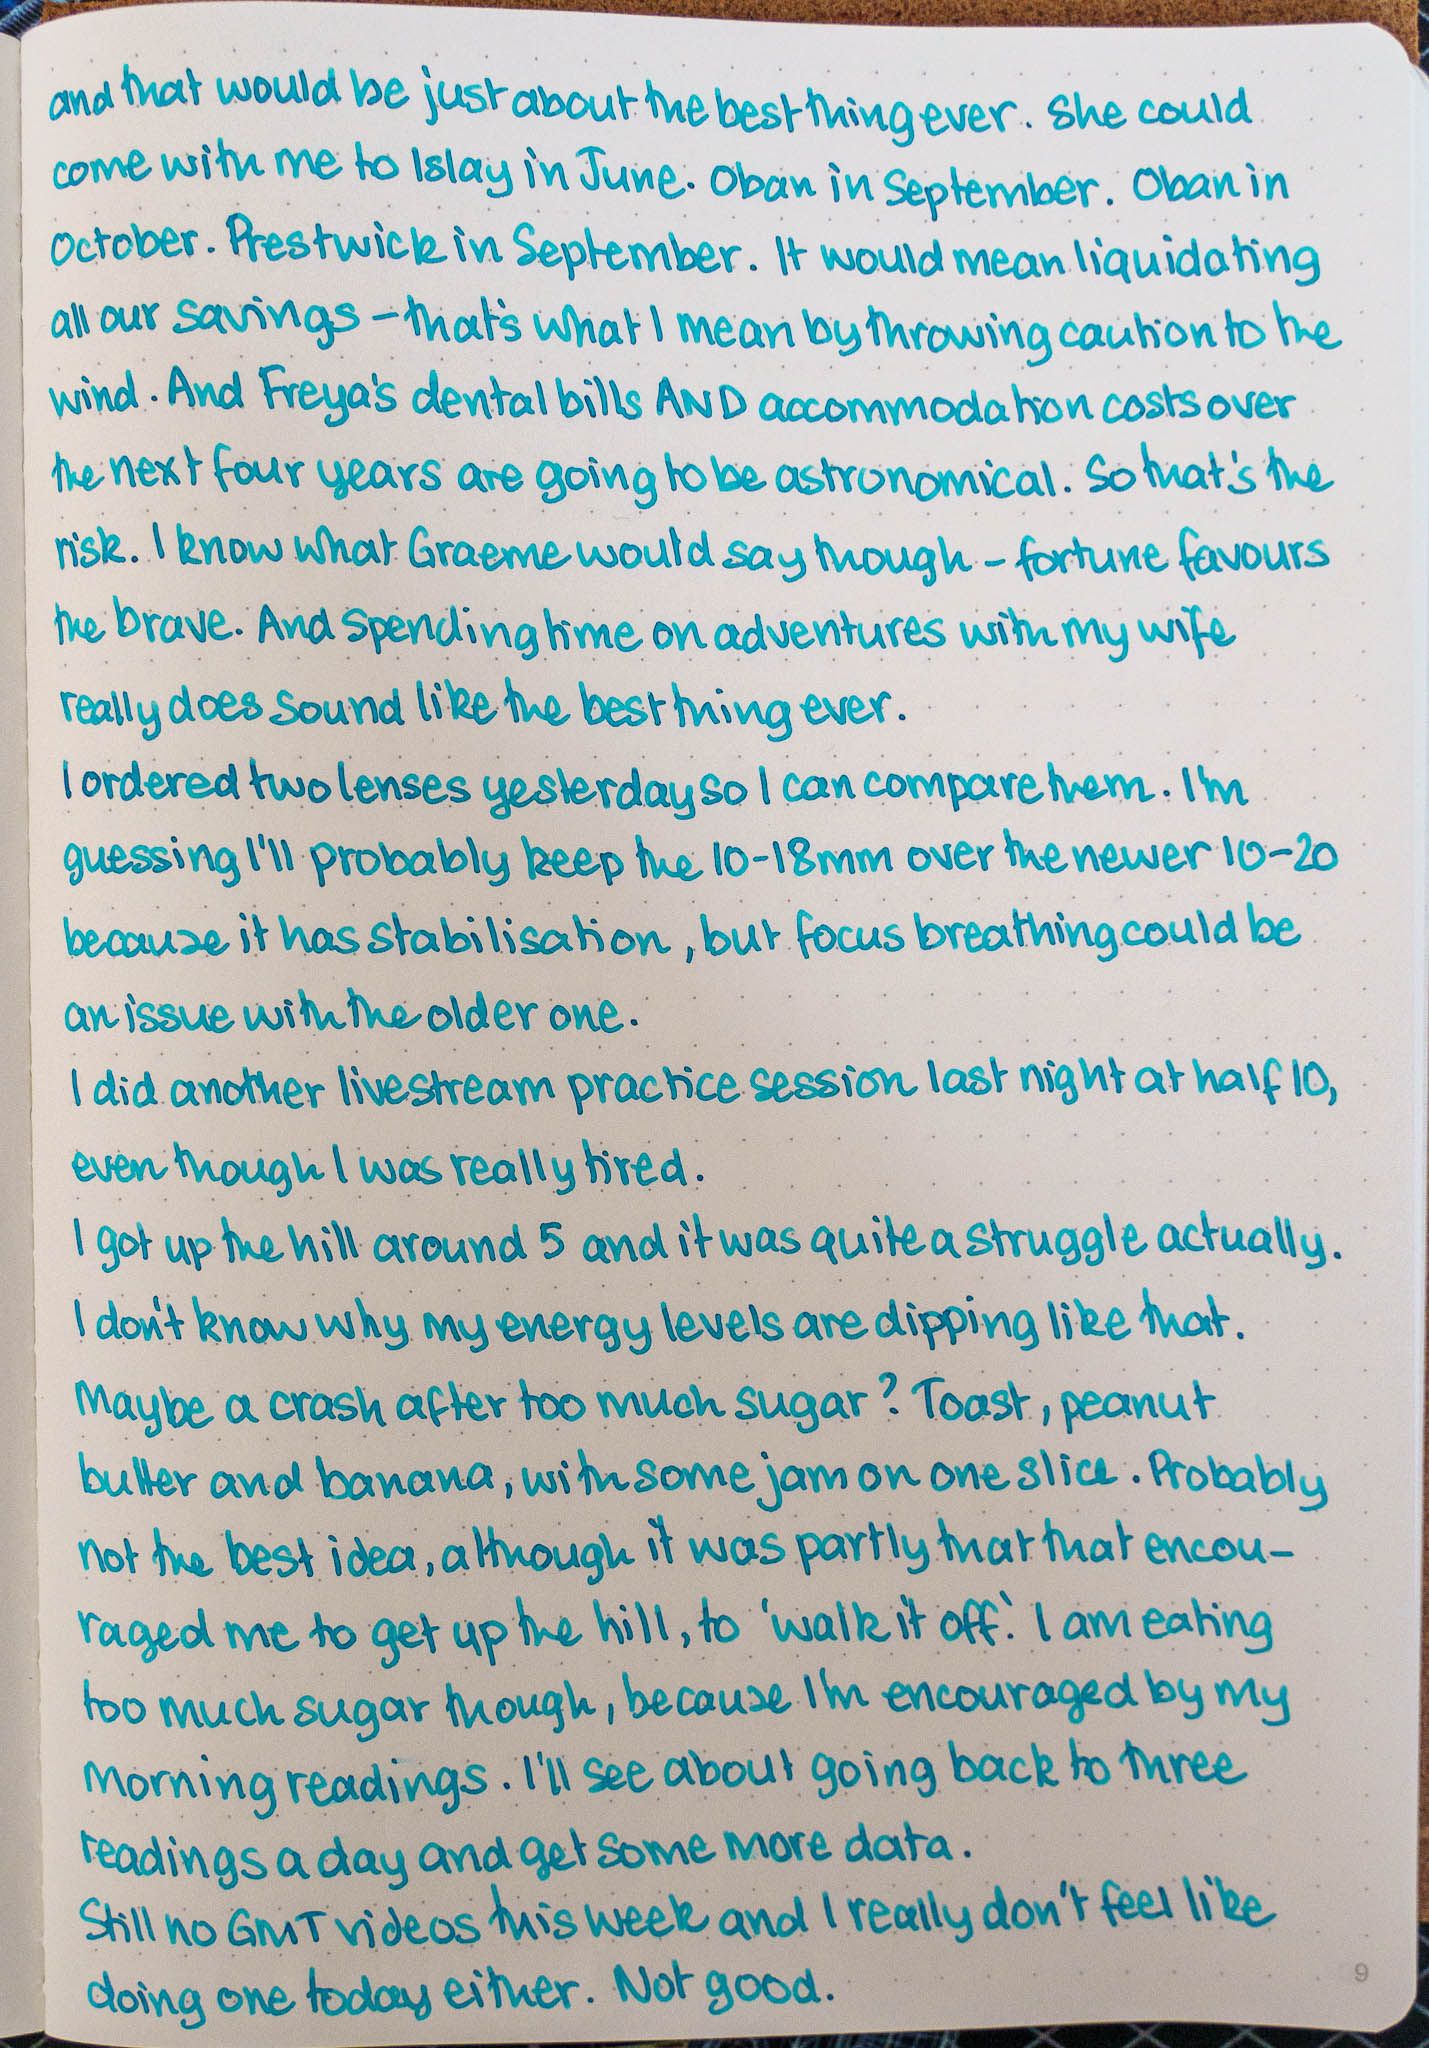 and that would be just about the best thing ever. She could
come with me to Islay in June. Oban in September. Oban in
October. Prestwick in September. It would mean liquidating
all our savings – that's what I mean by throwing caution to the
wind. And Freya's dental bills AND accommodation costs over
the next four years are going to be astronomical. So that's the
risk. I know what Graeme would say though – fortune favours
the brave. And spending time on adventures with my wife
really does sound like the best thing ever.
I ordered two lenses yesterday so I can compare them. I'm
guessing I'll probably keep the 10-18mm over the newer 10-20
because it has stabilisation, but focus breathing could be
an issue with the older one.
I did another livestream practice session last night at half 10,
even though I was really tired.
I got up the hill around 5 and it was quite a struggle actually.
I don't know why my energy levels are dipping like that.
Maybe a crash after too much sugar? Toast, peanut
butter and banana, with some jam on one slice. Probably
not the best idea, although it was partly that that encou-
raged me to get up the hill, to 'walk it off'. I am eating
too much sugar though, because I'm encouraged by my
morning readings. I'll see about going back to three
readings a day and get some more data.
Still no GMT videos this week and I really don't feel like
doing one today either. Not good.
9